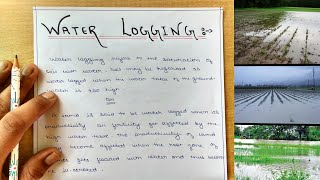 WATER LOGGING :→
Water logging refers to the saturation of
soil with water. Soil may be regarded as
water logged when the water table of the ground-
water is too high.
OR
A land is said to be water logged when its
productivity or fertility get affected by the
high water table. The productivity of land
get affected when the root zone of
gets flooded with water and thus
is